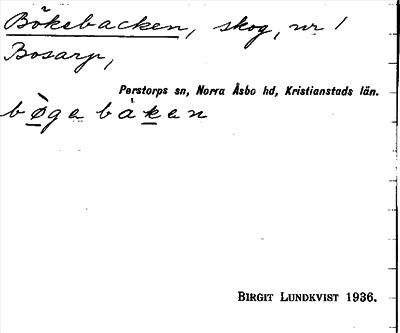 Bökebacken, skog, nr 1
Bosarp,
Perstorps sn, Norra Åsbo hd, Kristianstads län.
bø̀gebàken
BIRGIT LUNDKVIST 1936.